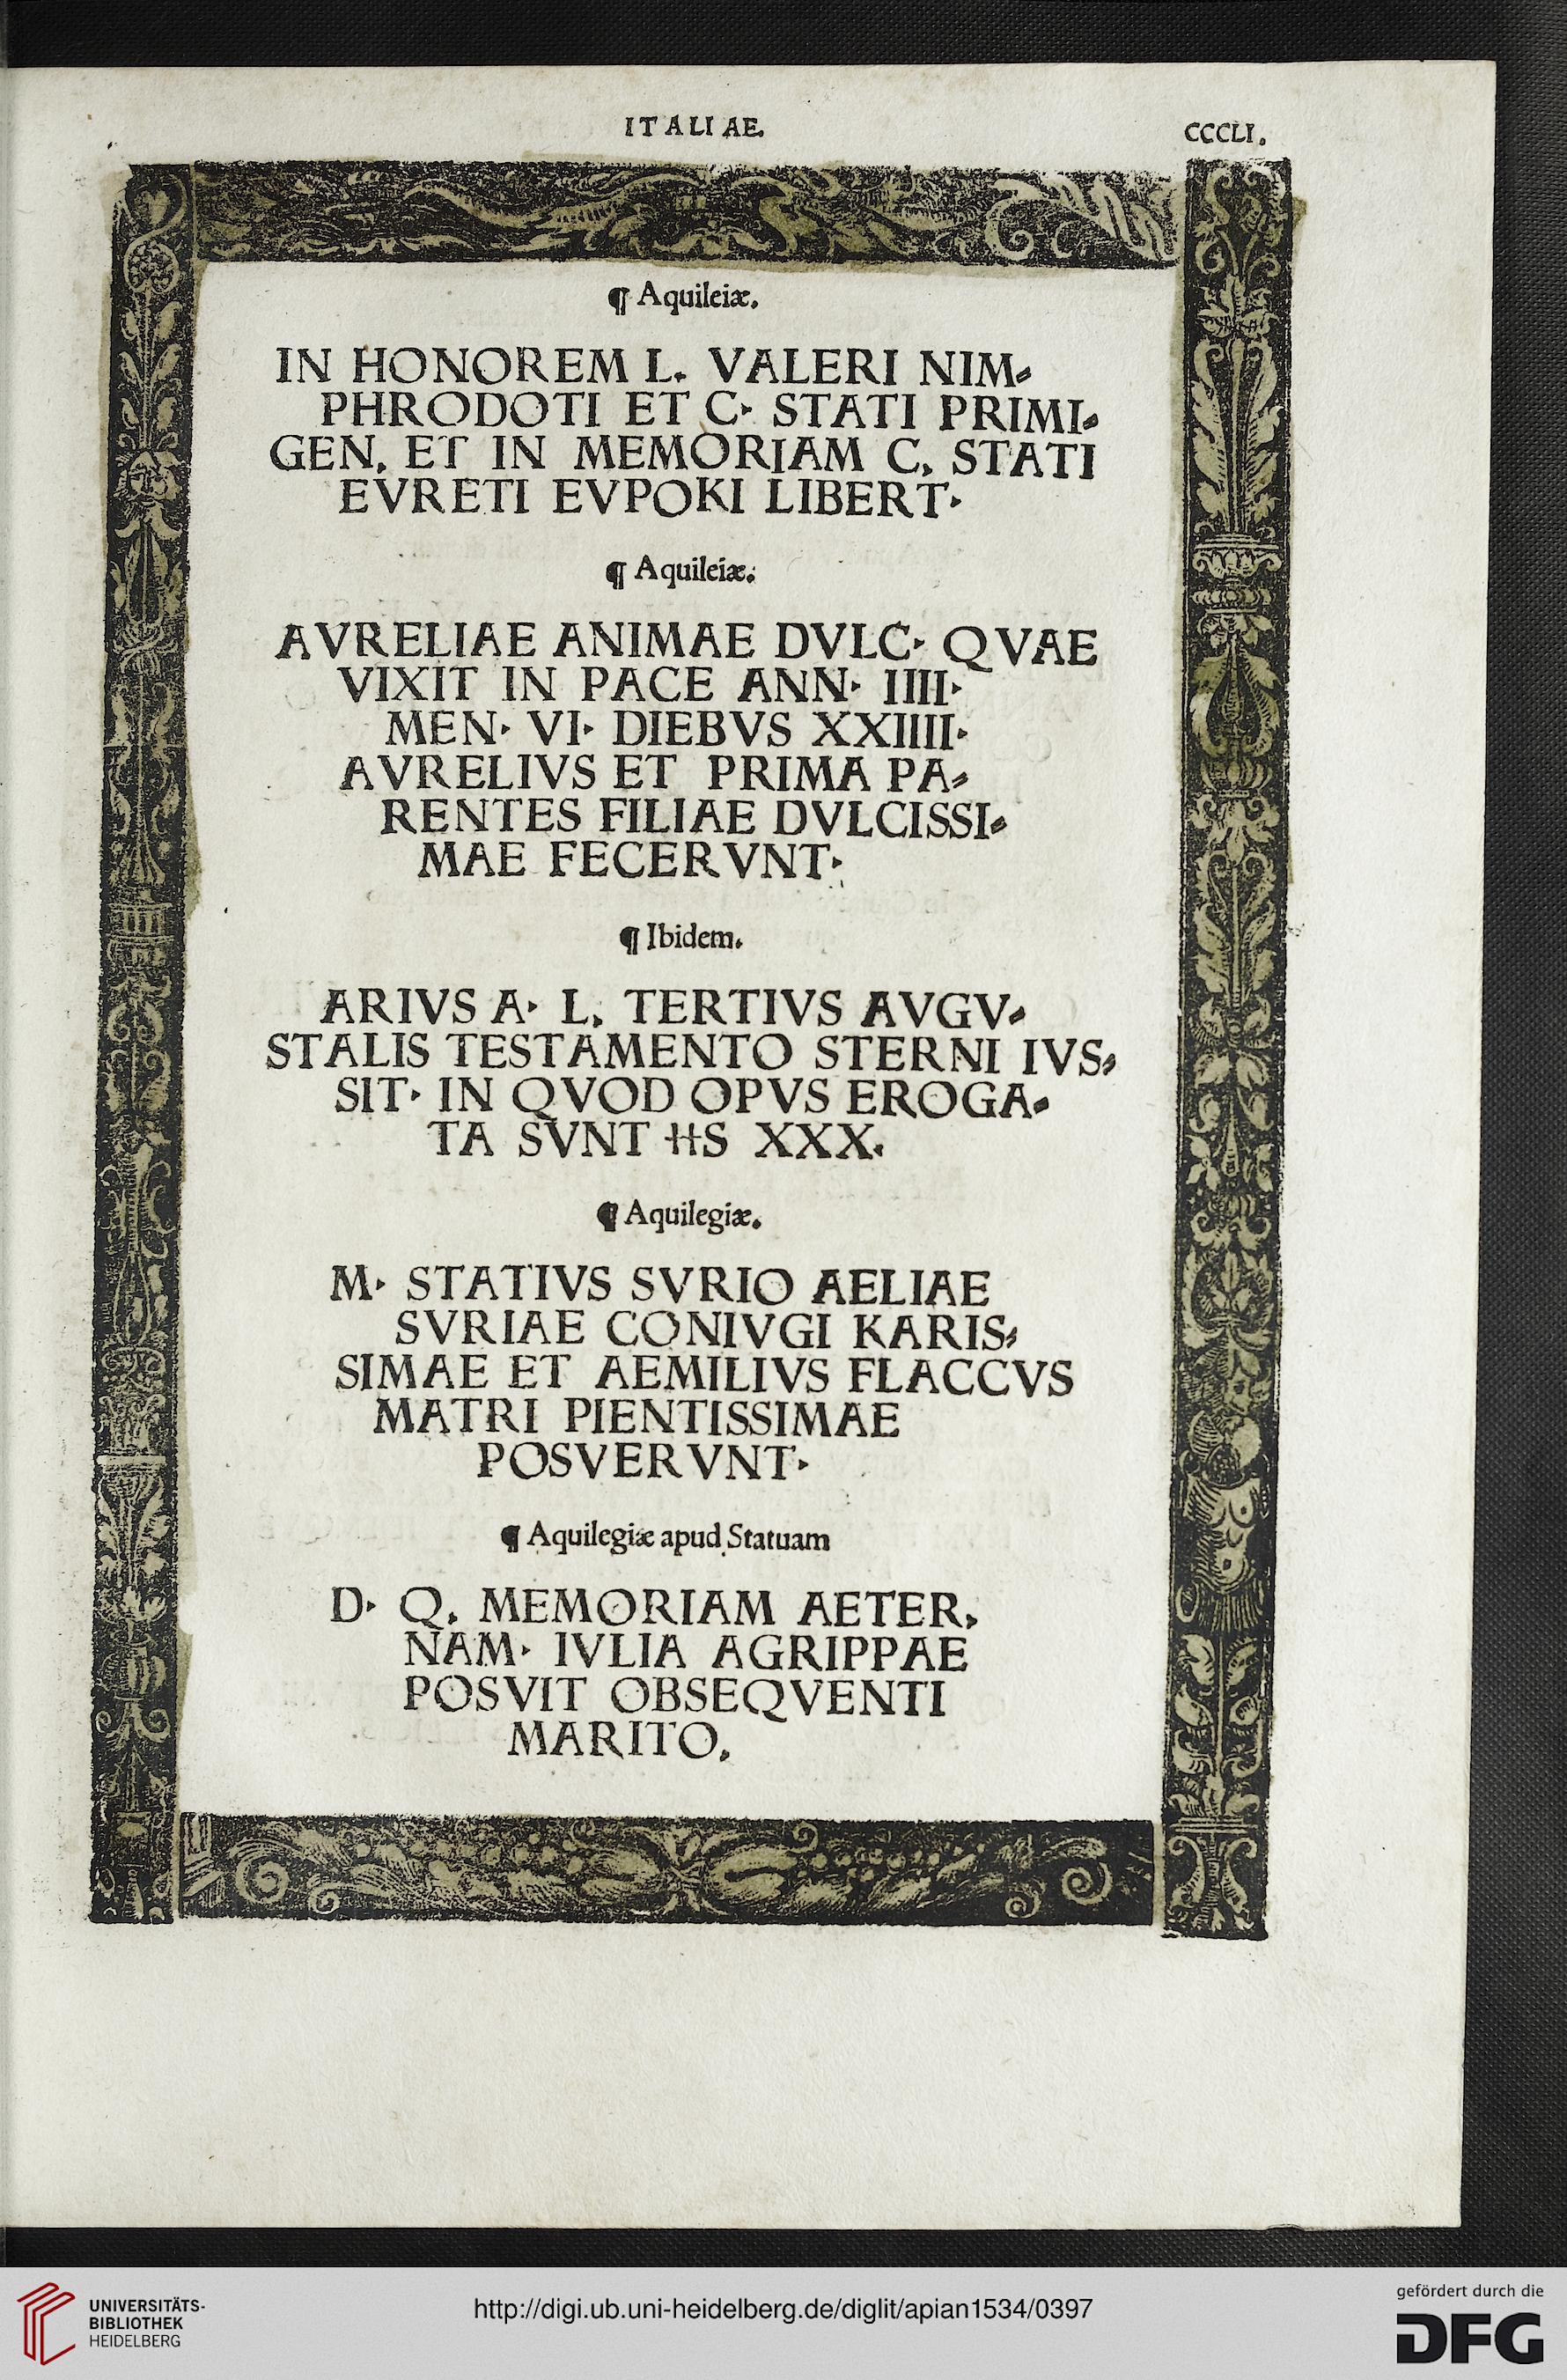 ITALIAE.
CCCLI.
¶ Aquileiæ.
IN HONOREM L. VALERI NIM⸗
PHRODOTI ET C· STATI PRIMI⸗
GEN. ET IN MEMORIAM C. STATI
EVRETI EVPOKI LIBERT·
¶ Aquileiæ:
AVRELIAE ANIMAE DVLC· QVAE
VIXIT IN PACE ANN· IIII·
MEN· VI· DIEBVS XXIIII·
AVRELIVS ET PRIMA PA⸗
RENTES FILIAE DVLCISSI⸗
MAE FECERVNT·
¶ Ibidem.
ARIVS A· L. TERTIVS AVGV⸗
STALIS TESTAMENTO STERNI IVS⸗
SIT· IN QVOD OPVS EROGA⸗
TA SVNT HS XXX.
¶ Aquilegiæ.
M· STATIVS SVRIO AELIAE
SVRIAE CONIVGI KARIS⸗
SIMAE ET AEMILIVS FLACCVS
MATRI PIENTISSIMAE
POSVERVNT·
¶ Aquilegiæ apud Statuam
D· Q. MEMORIAM AETER.
NAM· IVLIA AGRIPPAE
POSVIT OBSEQVENTI
MARITO.
UNIVERSITÄTS-
BIBLIOTHEK
HEIDELBERG
http://digi.ub.uni-heidelberg.de/diglit/apian1534/0397
gefördert durch die
DFG